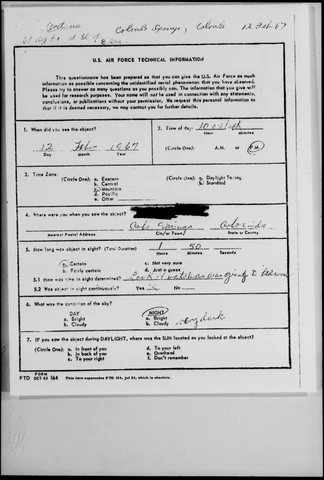 Colorado Springs, Colorado 12 Feb 67
U.S. AIR FORCE TECHNICAL INFORMATION
This questionnaire has been prepared so that you can give the U.S. Air Force as much
information as possible concerning the unidentified aerial phenomenon that you have observed.
Please try to answer as many questions as you possibly can. The information that you give will
be used for research purposes. Your name will not be used in connection with any statements,
conclusions, or publications without your permission. We request this personal information so
that if it is deemed necessary, we may contact you for further details.
1. When did you see the object?
12 Feb 1967
Day Month Year
2. Time of day: 10 o'clock
Hour Minutes
(Circle One): A.M. or P.M.
3. Time Zone:
(Circle One): a. Eastern
b. Central
c. Mountain
d. Pacific
e. Other
(Circle One): a. Daylight Saving
b. Standard
4. Where were you when you saw the object?
Colo Springs Colorado
Nearest Postal Address City or Town State or County
5. How long was object in sight? (Total Duration) 1 50
Hours Minutes Seconds
a. Certain c. Not very sure
b. Fairly certain d. Just a guess
5.1 How was time in sight determined? Look at clock when going to bedroom
5.2 Was object in sight continuously? Yes No
6. What was the condition of the sky?
DAY NIGHT
a. Bright a. Bright
b. Cloudy b. Cloudy very dark
7. IF you saw the object during DAYLIGHT, where was the SUN located as you looked at the object?
(Circle One): a. In front of you d. To your left
b. In back of you e. Overhead
c. To your right f. Don't remember
FORM
FTD OCT 62 164 This form supersedes FTD 164, Jul 61, which is obsolete.